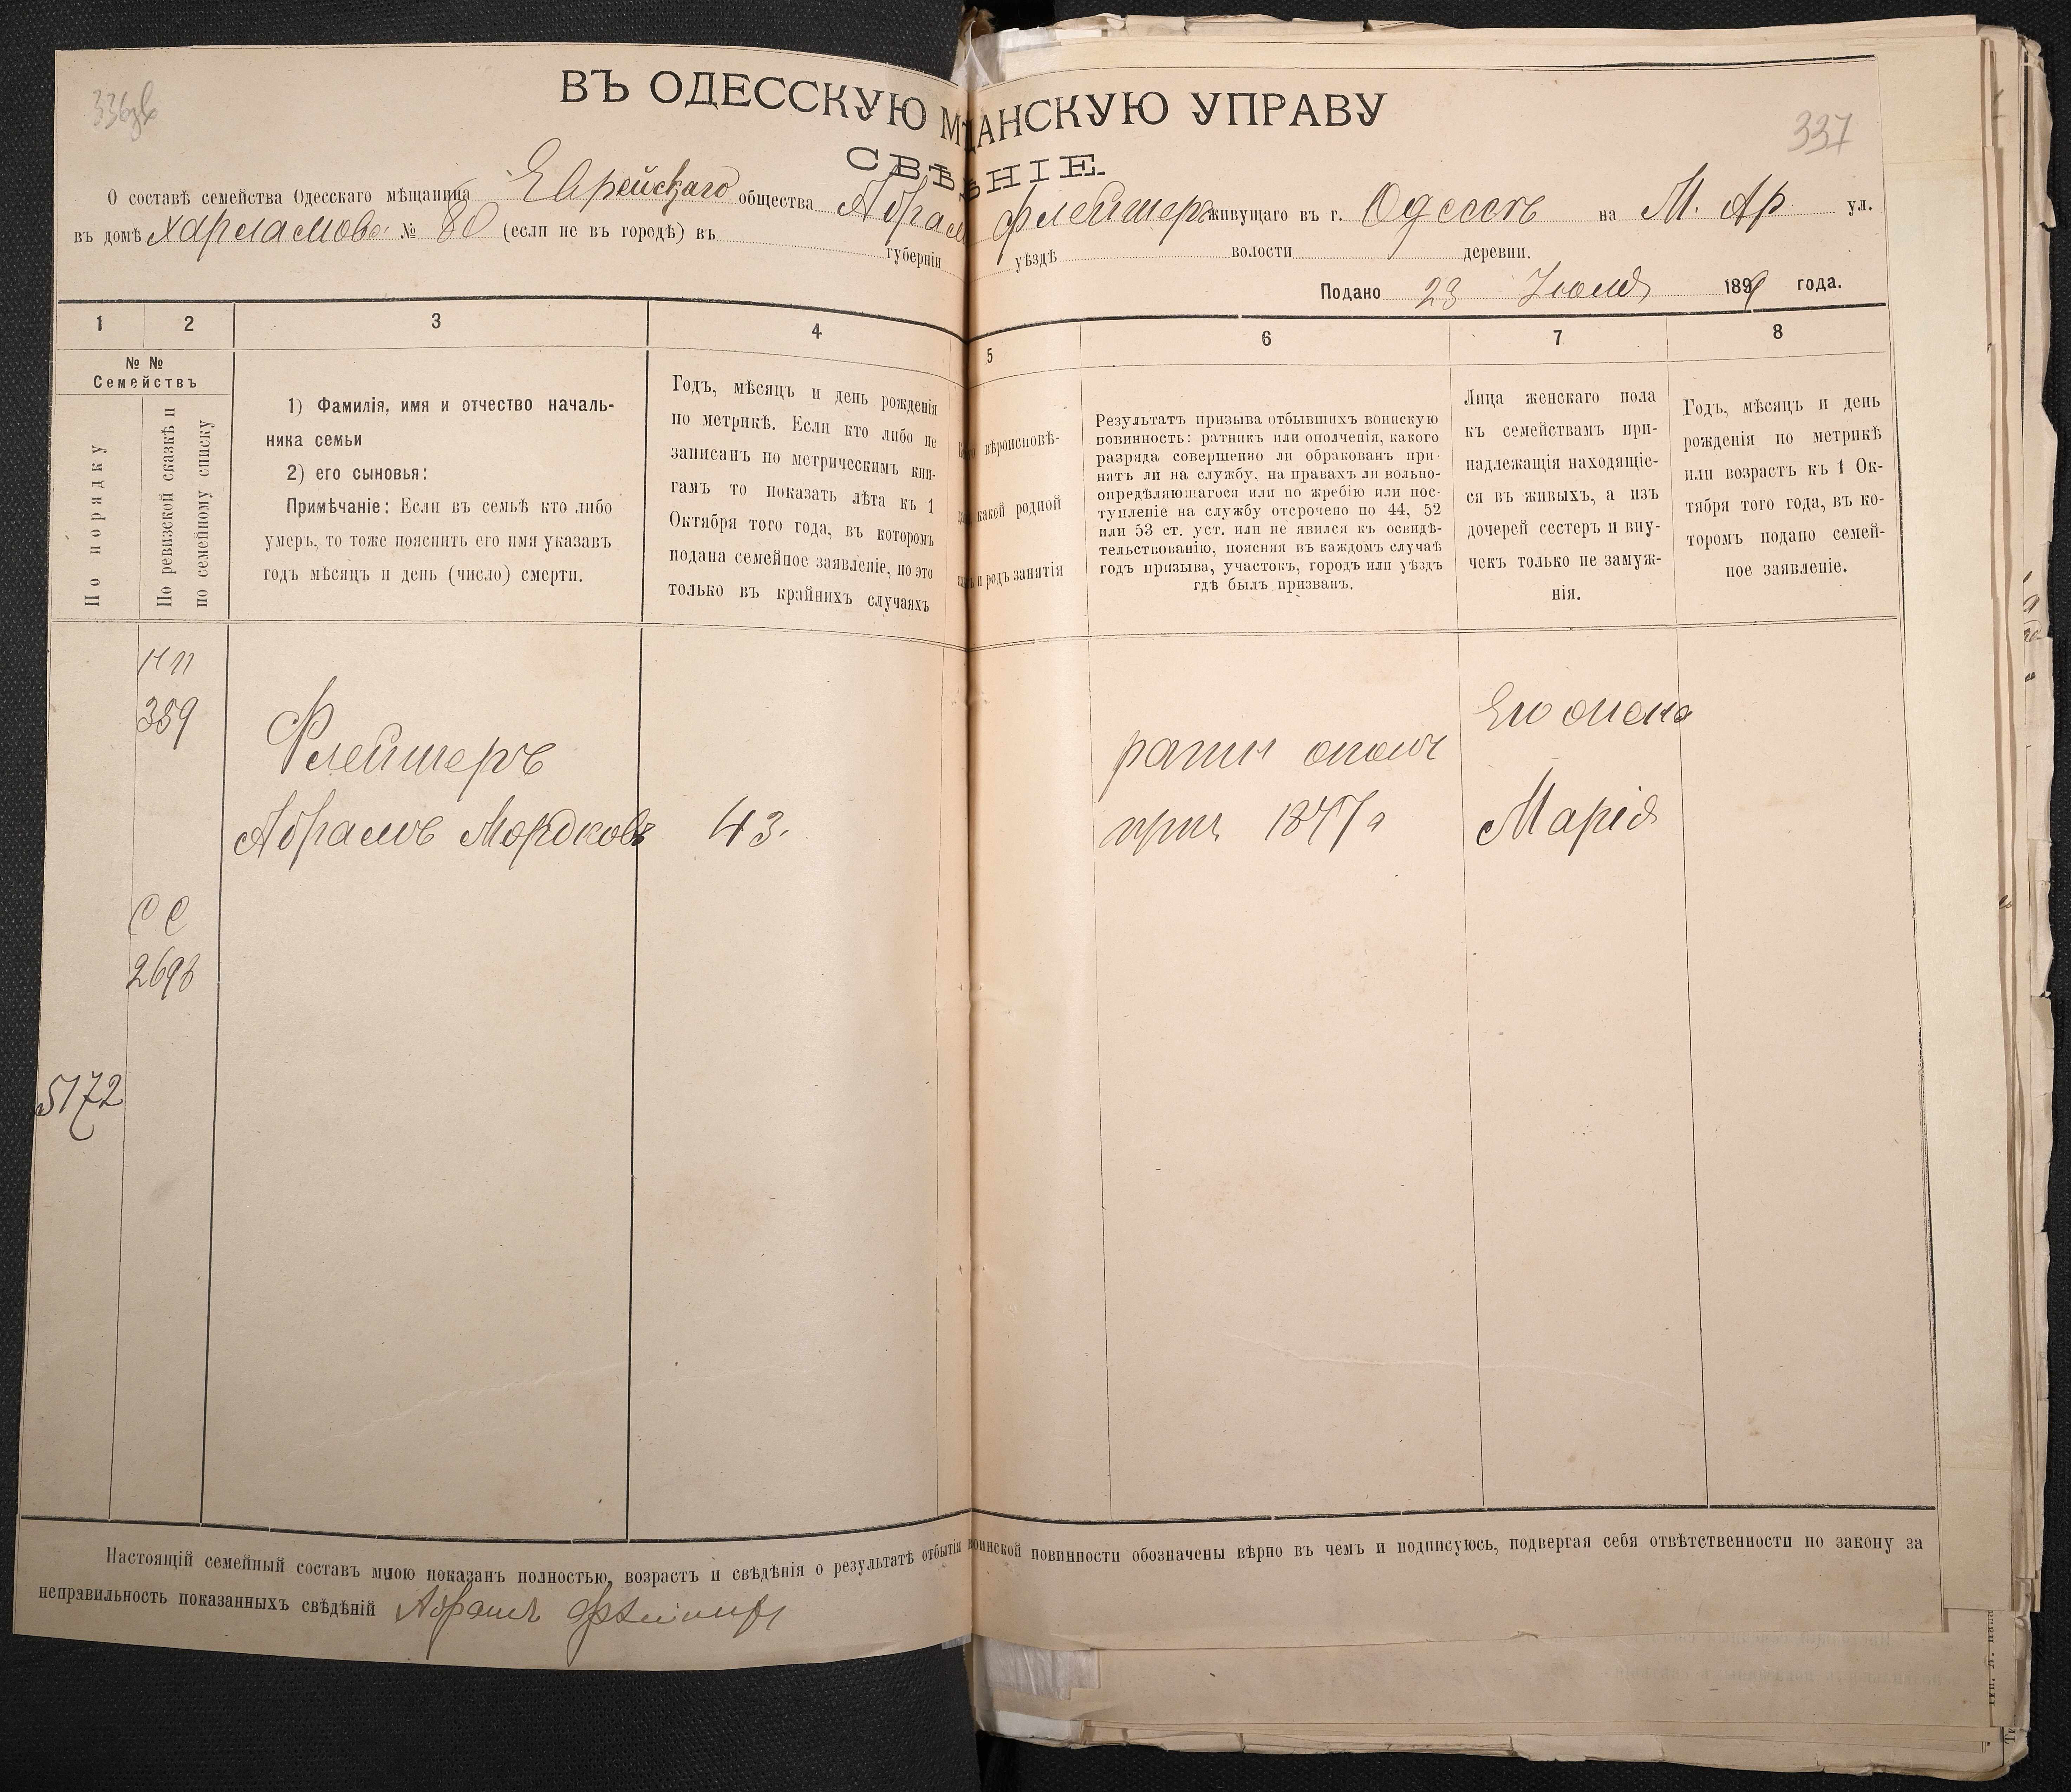 336 об
337
ВЪ ОДЕССКУЮ МѢЩАНСКУЮ УПРАВУ
СВѢДѢНІЕ.
О составѣ семейства Одесскаго мѣщанина Еврейскаго общества Абрам Флейшеръ живущаго въ г. Одессѣ на М. Ар. ул.
въ домѣ Харламова № 80 (если не въ городѣ) въ губерніи уѣздѣ волости деревни.
Подано 23 Іюля 189 года.
1 2 3 4 5 6 7 8
№ №
Семействъ
По порядку
По ревизской сказкѣ и
по семейному списку
1) Фамилія, имя и отчество началь-
ника семьи
2) его сыновья:
Примѣчаніе: Если въ семьѣ кто либо
умеръ, то тоже пояснить его имя указавъ
годъ мѣсяцъ и день (число) смерти.
Годъ, мѣсяцъ и день рожденія
по метрикѣ. Если кто либо не
записанъ по метрическим книг-
гамъ то показать лѣта къ 1
Октября того года, въ которомъ
подана семейное заявленіе, но это
только въ крайнихъ случаяхъ
вѣроисповѣ-
какой родной
и родъ занятія
Результатъ призыва отбывшихъ воинскую
повинность: ратникъ или ополченія, какого
разряда совершенно ли обракованъ при-
нятъ ли на службу, на правахъ ли вольно-
опредѣляющагося или по жребію или пос-
тупленіе на службу отсрочено по 44, 52
или 53 ст. уст. или не явился къ освидѣ-
тельствованію, поясняя въ каждомъ случаѣ
годъ призыва, участокъ, городъ или уѣздъ
гдѣ былъ призванъ.
Лица женскаго пола
къ семействамъ при-
надлежащія находящіе-
ся въ живыхъ, а изъ
дочерей сестеръ и вну-
чекъ только не замуж-
нія.
Годъ, мѣсяцъ и день
рожденія по метрикѣ
или возрастъ къ 1 Ок-
тября того года, въ ко-
торомъ подано семей-
ное заявленіе.
359
Флейшеръ
Абрамъ Мордковъ 43.
ратн ополч
приз 1877 г
Его жена
Марія
СС
2698
5172
Настоящій семейный составъ мною показанъ полностью, возрастъ и свѣдѣнія о результатѣ отбытія воинской повинности обозначены вѣрно въ чемъ и подписуюсь, подвергая себя отвѣтственности по закону за
неправильность показанныхъ свѣдѣній Абрамъ Флейшеръ